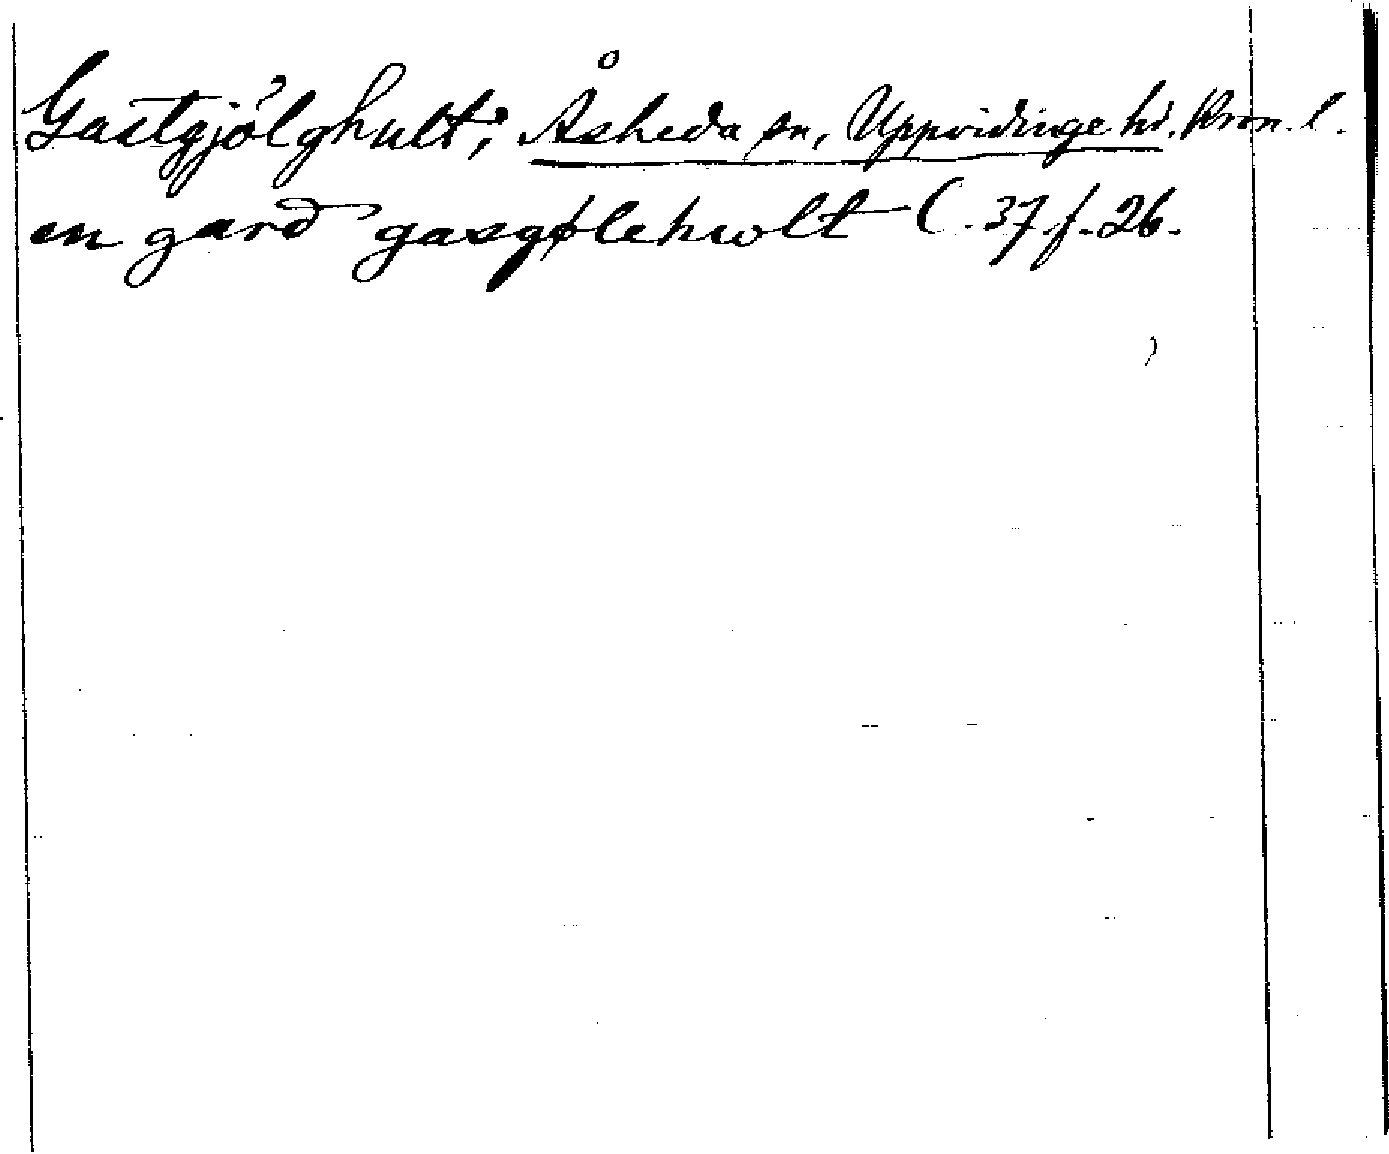 Gastgjölghult; Åsheda sn, Uppvidinge hd. Kron. l.
en gard gasgølehwolt C. 37 f. 26.